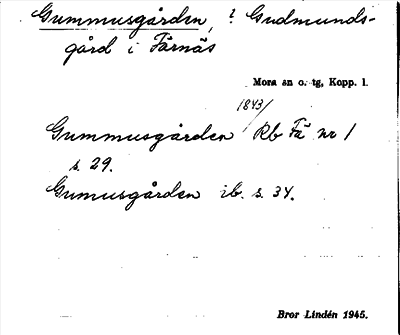 Gummusgården, ? Gudmunds-
gård i Färnäs
Mora sn o. tg, Kopp. l.
1843/
Gummusgården Rb Fä nr 1
s. 29.
Gumusgården ib. s. 34.
Bror Lindén 1945.